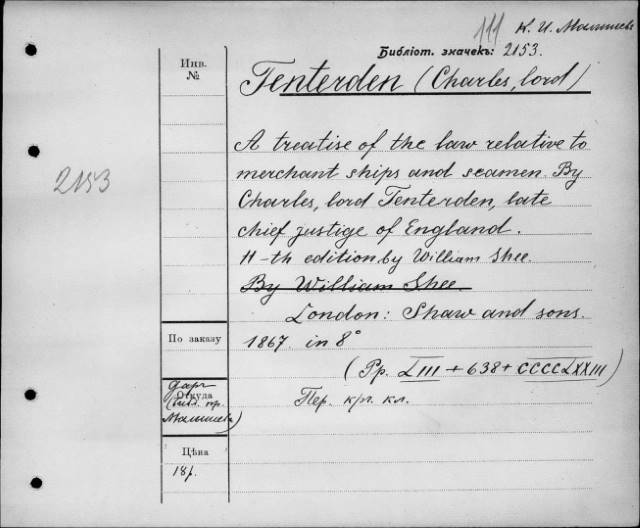 111 К. И. Малышевъ
Библіот. значекъ: 2153.
Инв.
№
Tenterden (Charles, lord)
2153
A treatise of the law relative to
merchant ships and seamen. By
Charles, lord Tenterden, late
chief justige of England.
11-th edition, by William Shee.
By William Shee.
London: Shaw and sons.
По заказу
1867. in 8°
(Pp. LIII + 638 + CCCCLXXIII)
Откуда
даръ
(библ. пр.
Малышева)
Пер. кр. кл.
Цѣна
18р.